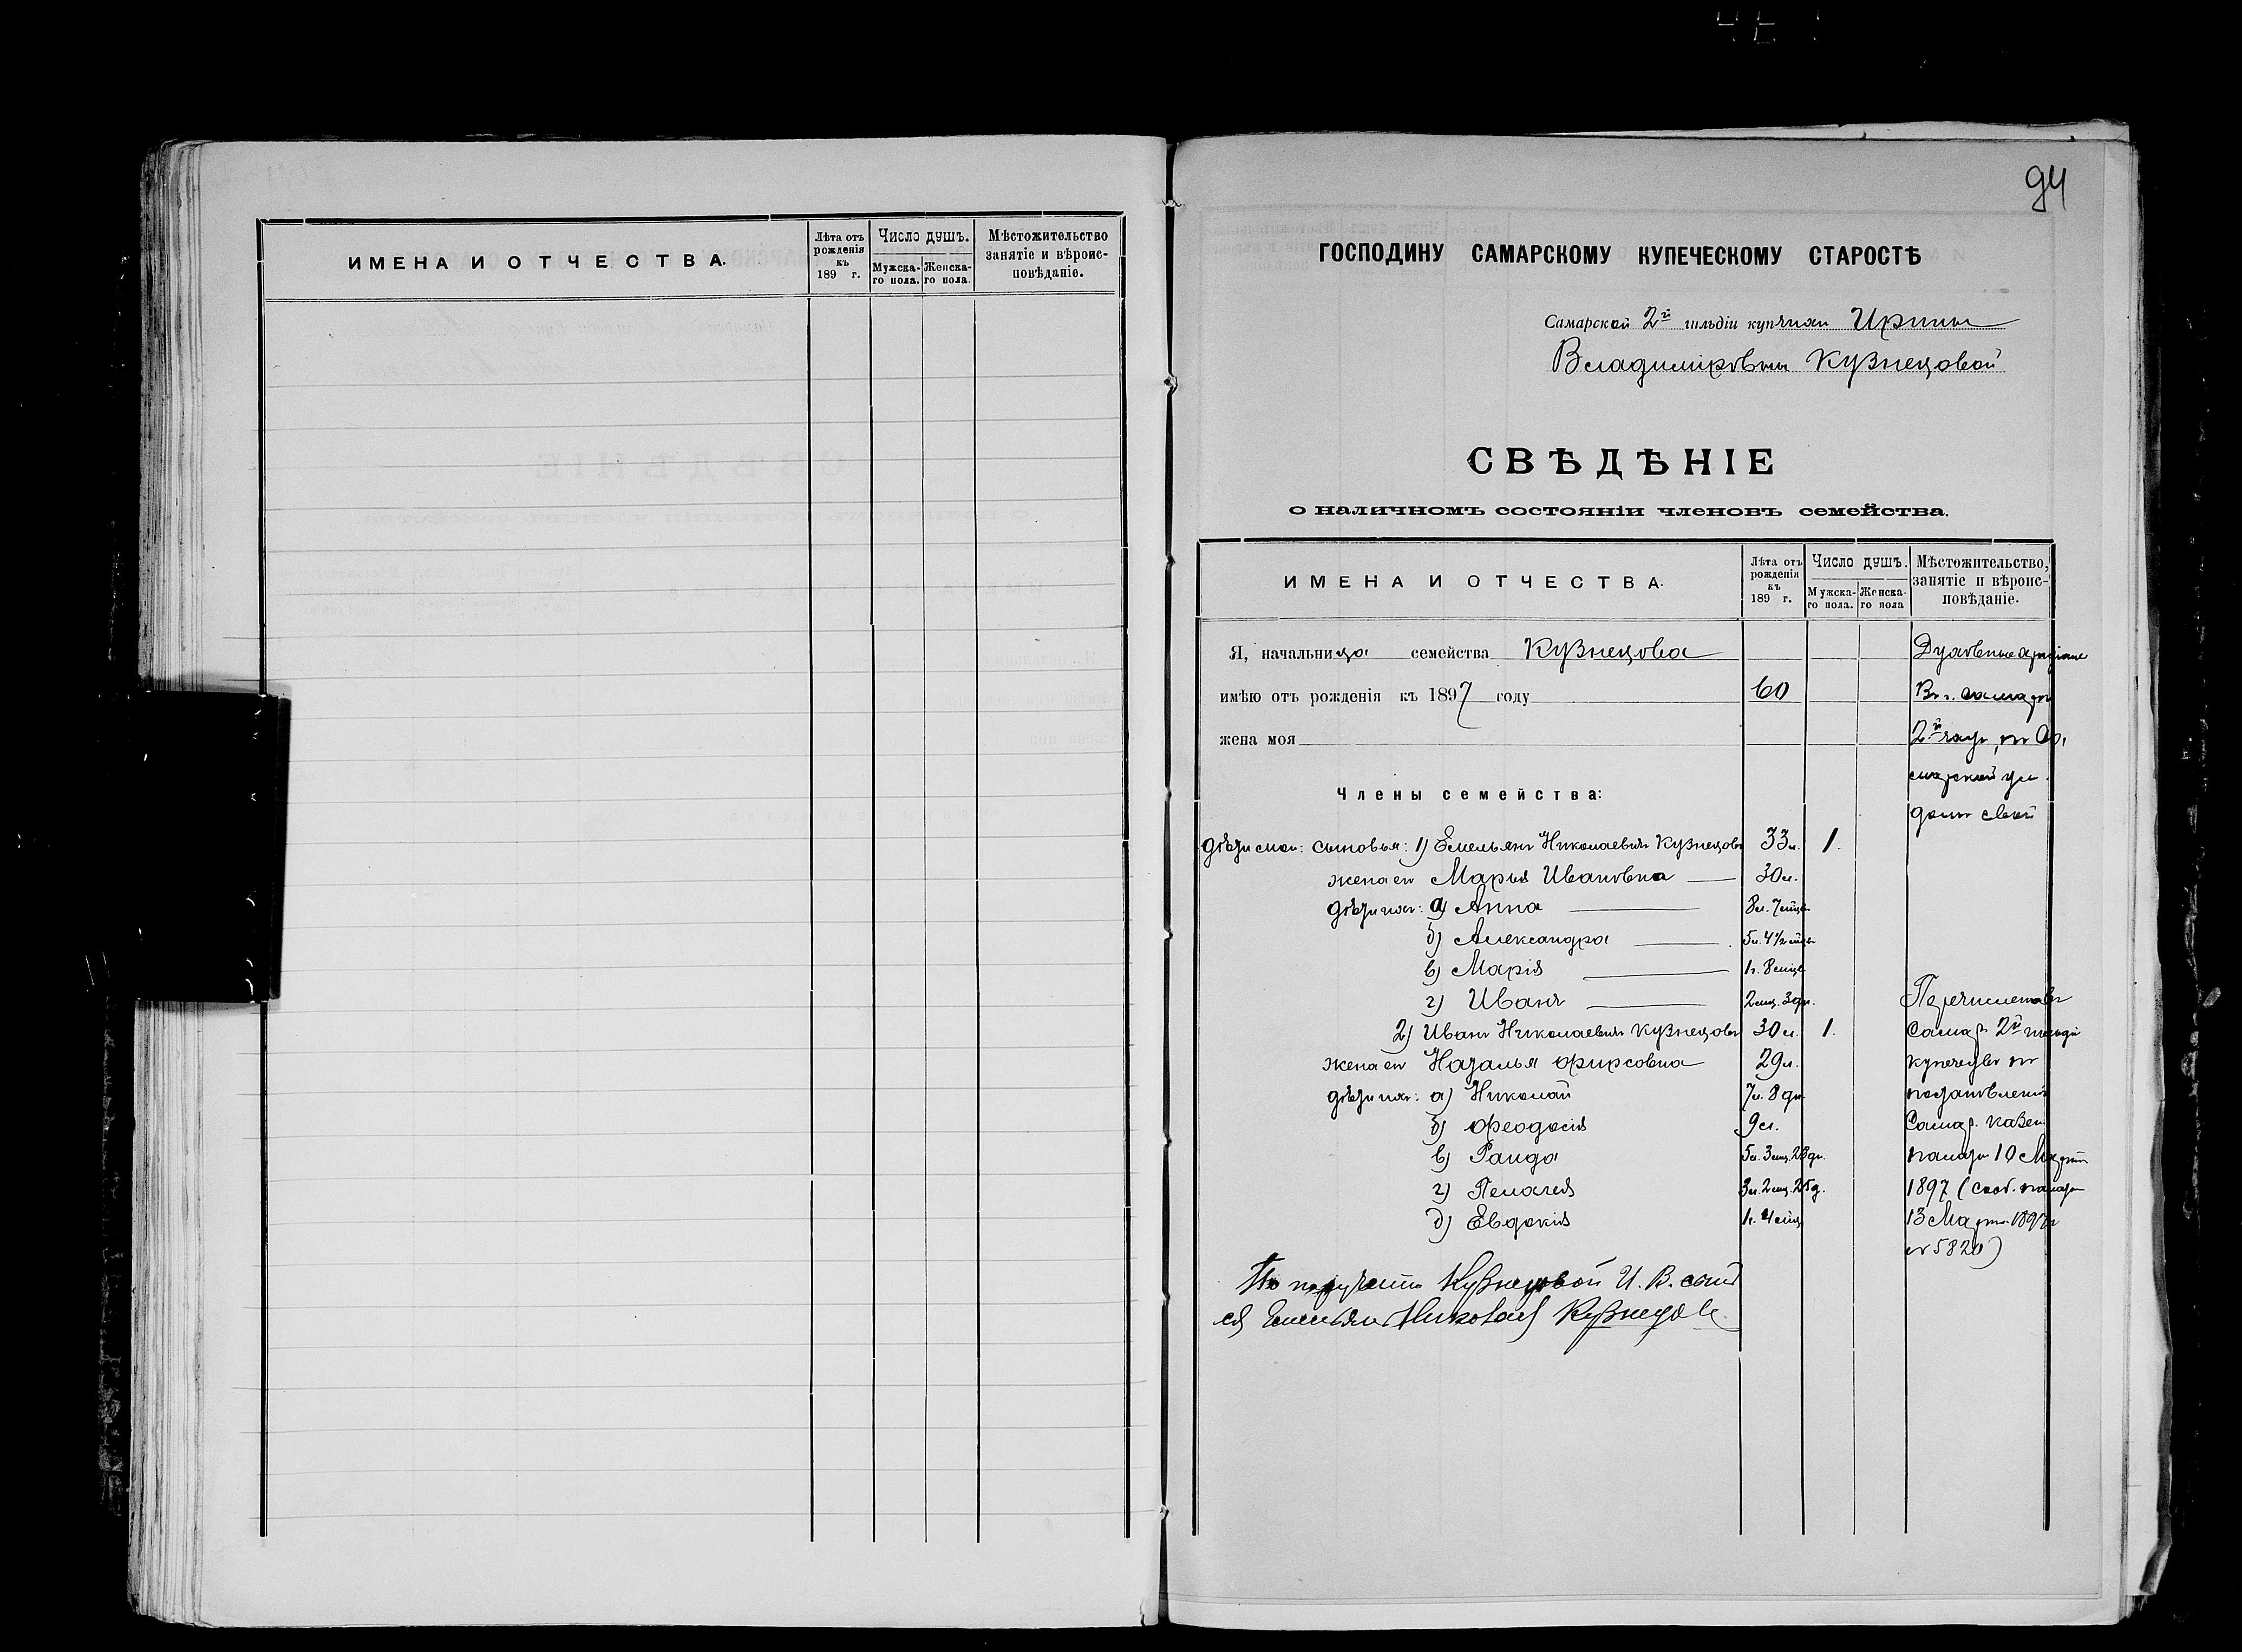 ИМЕНА И ОТЧЕСТВА.
Лѣта отъ рожденія къ 189 г.
Число душъ.
Мужска-го пола.
Женска-го пола.
Мѣстожительство занятіе и вѣроис-повѣданіе.
94
ГОСПОДИНУ САМАРСКОМУ КУПЕЧЕСКОМУ СТАРОСТѢ
Самарской 2й гильдіи купчихи Ирины
Владиміровны Кузнецовой
СВѢДѢНІЕ
о наличномъ состояніи членовъ семейства.
ИМЕНА И ОТЧЕСТВА.
Лѣта отъ рожденія къ 189 г.
Число душъ.
Мужска-го пола.
Женска-го пола
Мѣстожительство, занятіе и вѣроис-повѣданіе.
Я, начальница семейства Кузнецова
имѣю отъ рожденія къ 1897 году 60 Въ г. Самарѣ
жена моя 2й части, по Са
марской ул.
Члены семейства:
домъ свой
Дѣти мои: сыновья: 1) Емельянъ Николаевичъ Кузнецовъ 33 л. 1.
жена ег Марья Ивановна 30 л.
дѣти ихъ: а) Анна 8 л. 7 мцв
б) Александра 5 л. 4½ мцв
в) Марія 1 г. 8 мцв
г) Иванъ 2 мц. 3 дн. Перечисленъ въ
2) Иванъ Николаевичъ Кузнецовъ 30 л. 1. Самар. 2й гильдіи
жена ег Наталья Фирсовна 29 л. купечество по
дѣти ихъ: а) Николай 7 л. 8 дн. постановленію
б) Феодосія 9 л. Самар. казен.
в) Раида 5 л. 3 мц. 28 дн. палаты 10 Марта
г) Пелагея 3 л. 2 мц. 25 д. 1897 (сооб. палаты
д) Евдокія 1 г. 4 мц 13 Марта 1897 г
№ 5820)
По порученію Кузнецовой И. В. сынъ
ея Емельян Николаев Кузнецовъ.